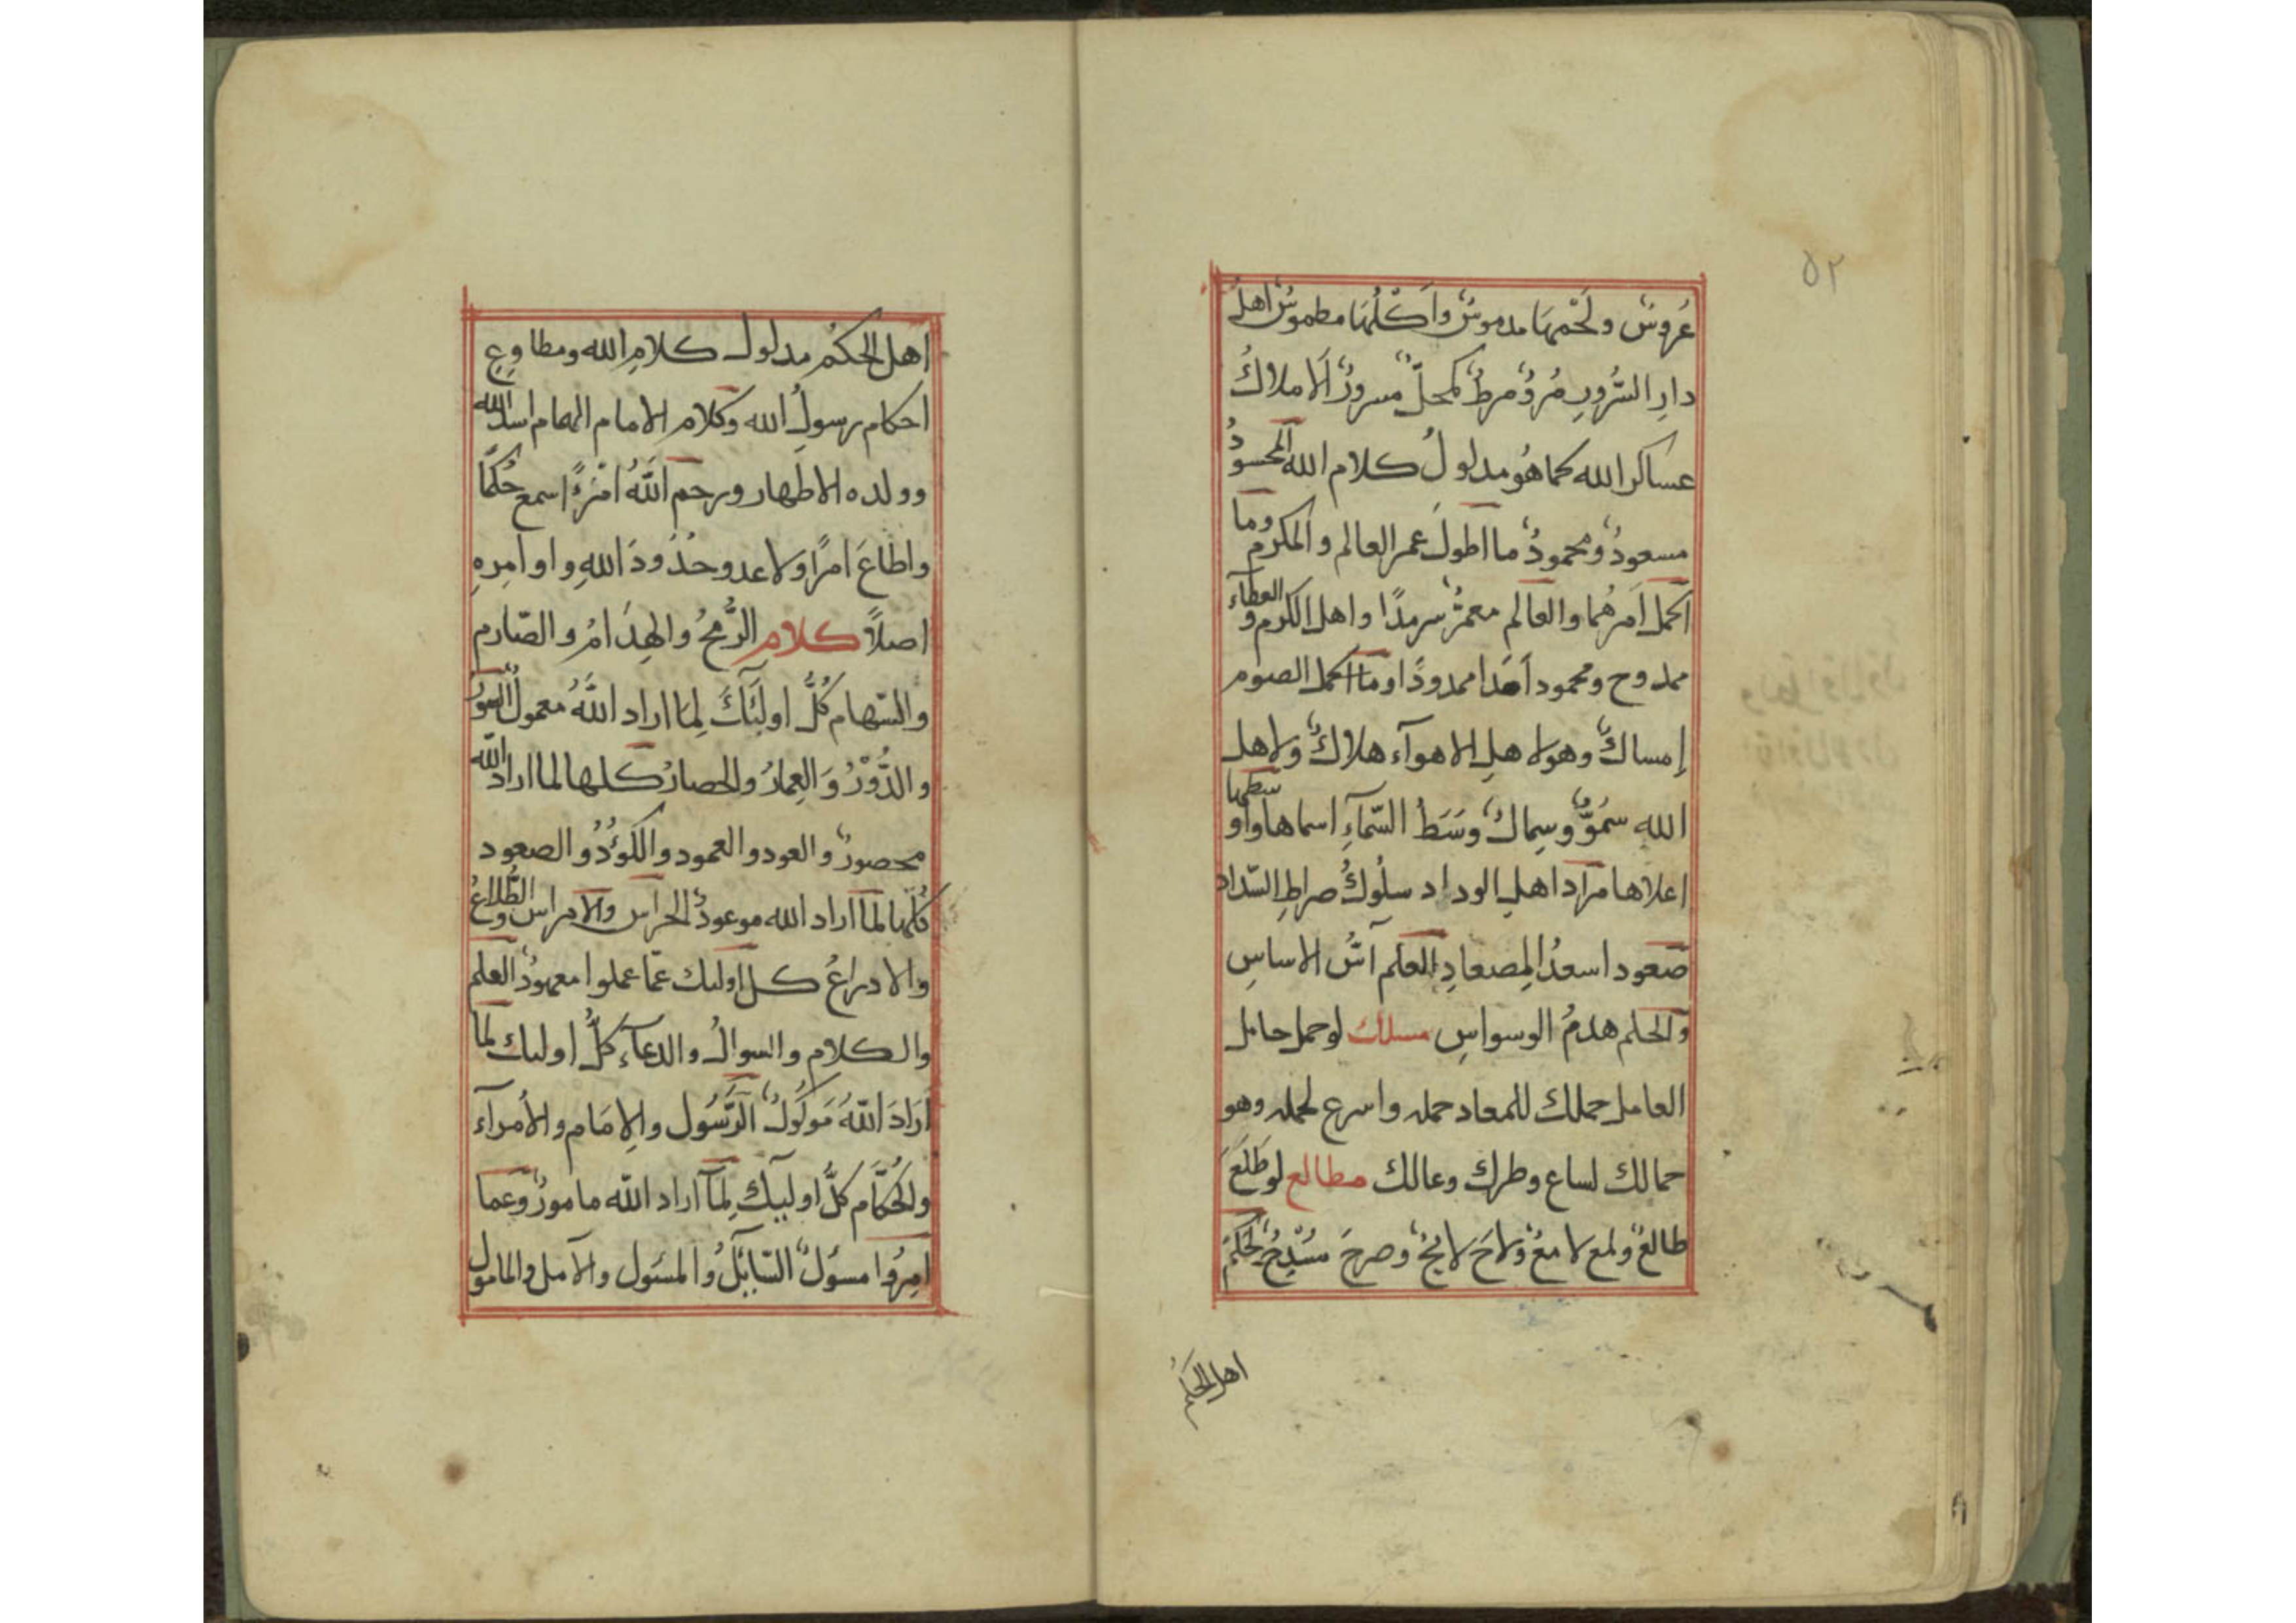 ٥٢
عُروسٌ ولَحْمهَا مدموسٌ واَكْلُهَا مطموسٌ اهلُ
دارِ السُّرورِ مُرؤٌ مرطٌ كمحلٌ مسرورٌ اَلاملاكُ
عساكر الله كما هُو مدلولُ كلام الله المحسودُ
مسعودٌ ومحمودٌ ما اطولَ عمر العالم والمكرم وما
اكمل اَمرهُما والعالم معمرٌ سرمدًا واهل الكرم والعطآء
ممدوح ومحمود اَمَدا ممدودًا وما اكمل الصوم
إمساكٌ وهو لاهلِ الاهوآء هلاكٌ ولاهل
الله سُمَوٌّ وسِماكٌ وسَطُ السّمآءِ اسماها واوسطها
اعلاها مرَاد اهلِ الوداد سلُوكُ صراطِ السّداد
صَعود اسعدُ المِصعادِ العلم اسُّ الاساسِ
وَالحلم هدمُ الوسواسِ مسلك لو حمل حامل
العامل حملك للمعاد حمله واسرع لحمله وهو
حمالك لساع وطرك وعالك مطالع لو طَلَعَ
طالعٌ ولمع لامعٌ ولاحَ لايحٌ وصرحَ مُسْدِحُ لحكمَ
اهل الحكم
اهل الحكم مدلول كلامِ الله ومطاوِعِ
احكام رسولِ الله وكلام الامام الهمام اسد الله
وولده الاطهار ورحم اللهُ امْرءً اسمع حُكمًا
واطاعَ امرًا ولا عدو حدُودَ اللهِ واوامِرِه
اصلاً كلام الرُّمحُ والهِدَامُ والصّارم
والسّهام كُلُّ اولئكَ لِمَا اراد اللهُ معمولٌ السورُ
والدُّوْرُ وَالعِمارُ والحصارُ كلها لما اراد الله
محصورٌ والعود والعمود والكؤدُ والصعود
كُلّها لمَا اراد الله موعودٌ الحراس والامراس والطُّلاعُ
والادراعُ كل اولىك عمّا عملوا معمودٌ العلم
والكلام والسوالُ والدعآء كلُّ اولىك لما
اَرَادَ اللهُ مَوكولٌ الرَّسُول والاِمَام والاُمرآء
والحُكَّام كلُّ اوليِكَ لِمَآ اراد الله مامورٌ وعما
اُمِرُوا مسؤلٌ السّايلُ والمسَول والآمل والمامول